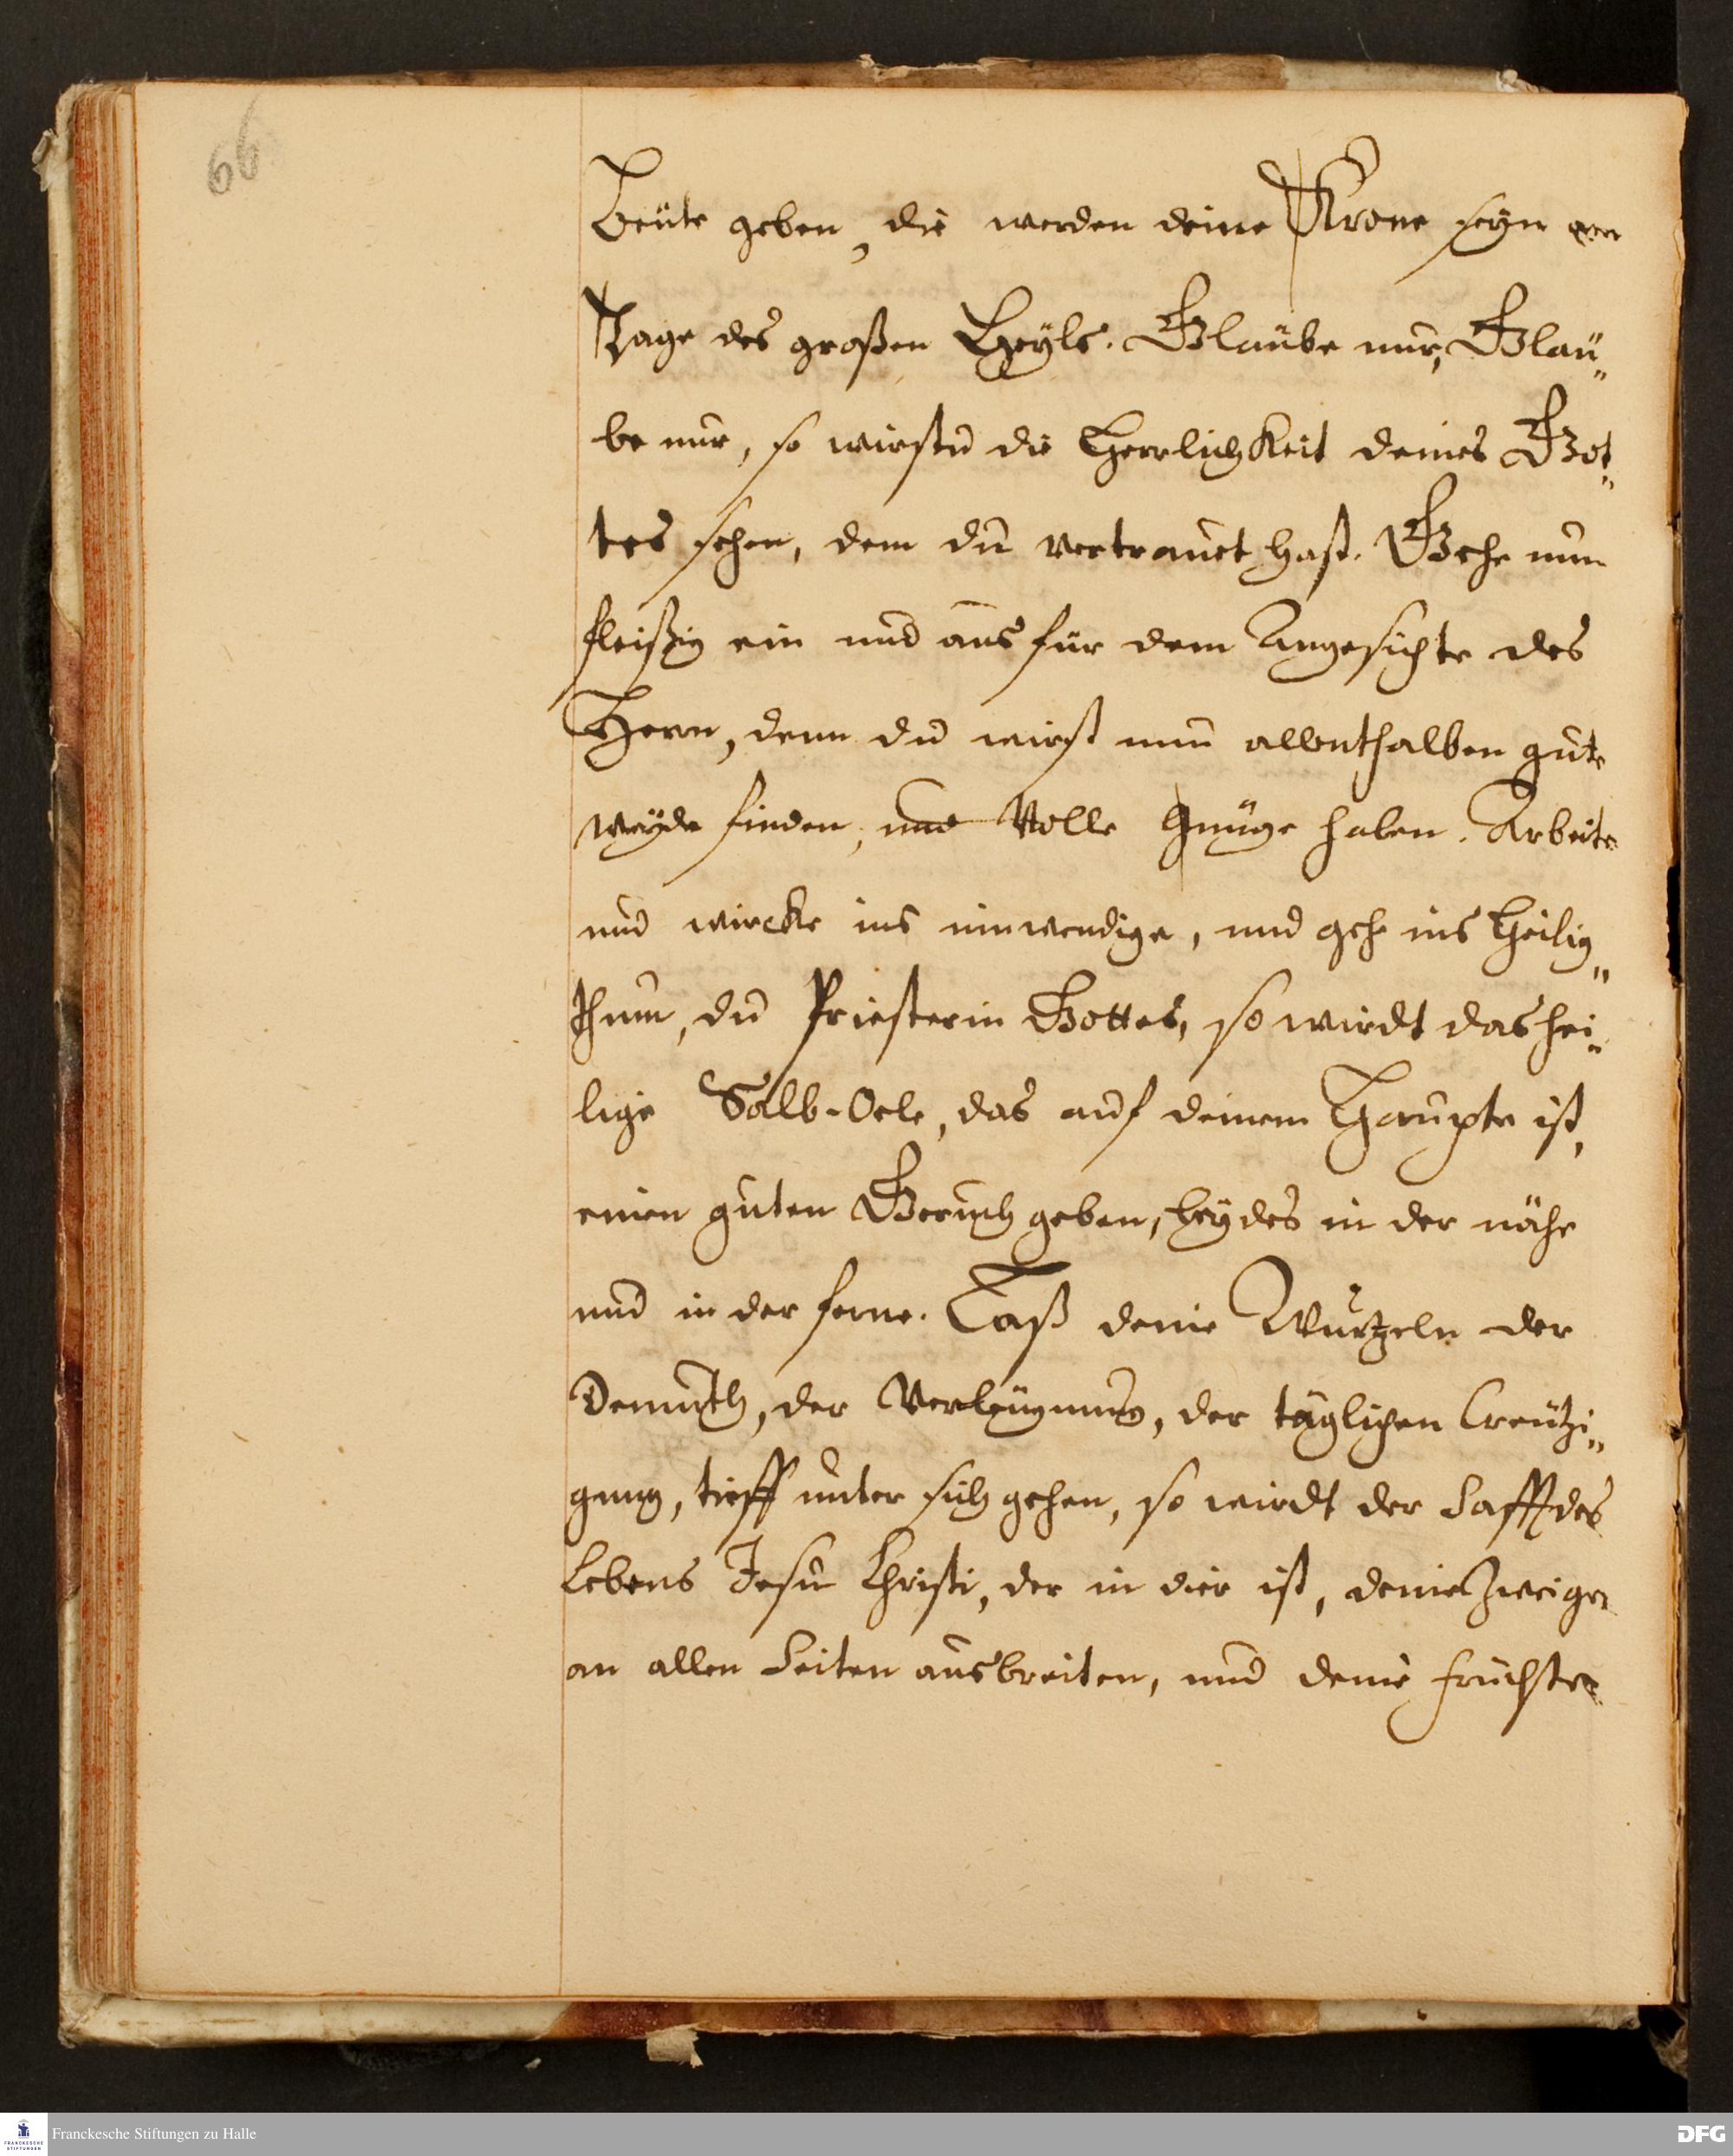 66
Beüte geben, die werden deine Krone seyn am
Tage des großen Heyls. Glaübe nur, Glaü„
be nur, so wirstu die Herrlichkeit deines Got„
tes sehen, dem du vertrauet hast. Gehe nun
fleißig ein und aus für dem Angesichte des
Herrn, denn du wirst nun allenthalben gute
weyde finden, und Volle Gnüge haben. Arbeite
und wircke ins innwendige, und geh ins Heilig„
thum, du Priesterin Gottes, so wirdt das hei„
lige Salb-Oele, das auf deinem Haupte ist,
einen guten Geruch geben, beydes in der nähe
und in der ferne. Laß deine Wurtzeln der
Demuth, der Verleügnung, der täglichen Creützi„
gung, tieff unter sich gehen, so wirdt der Safft des
Lebens Jesu Christi, der in dir ist, deine Zweige
an allen Seiten ausbreiten, und deine früchte
FRANCKESCHE STIFTUNGEN
Franckesche Stiftungen zu Halle
DFG